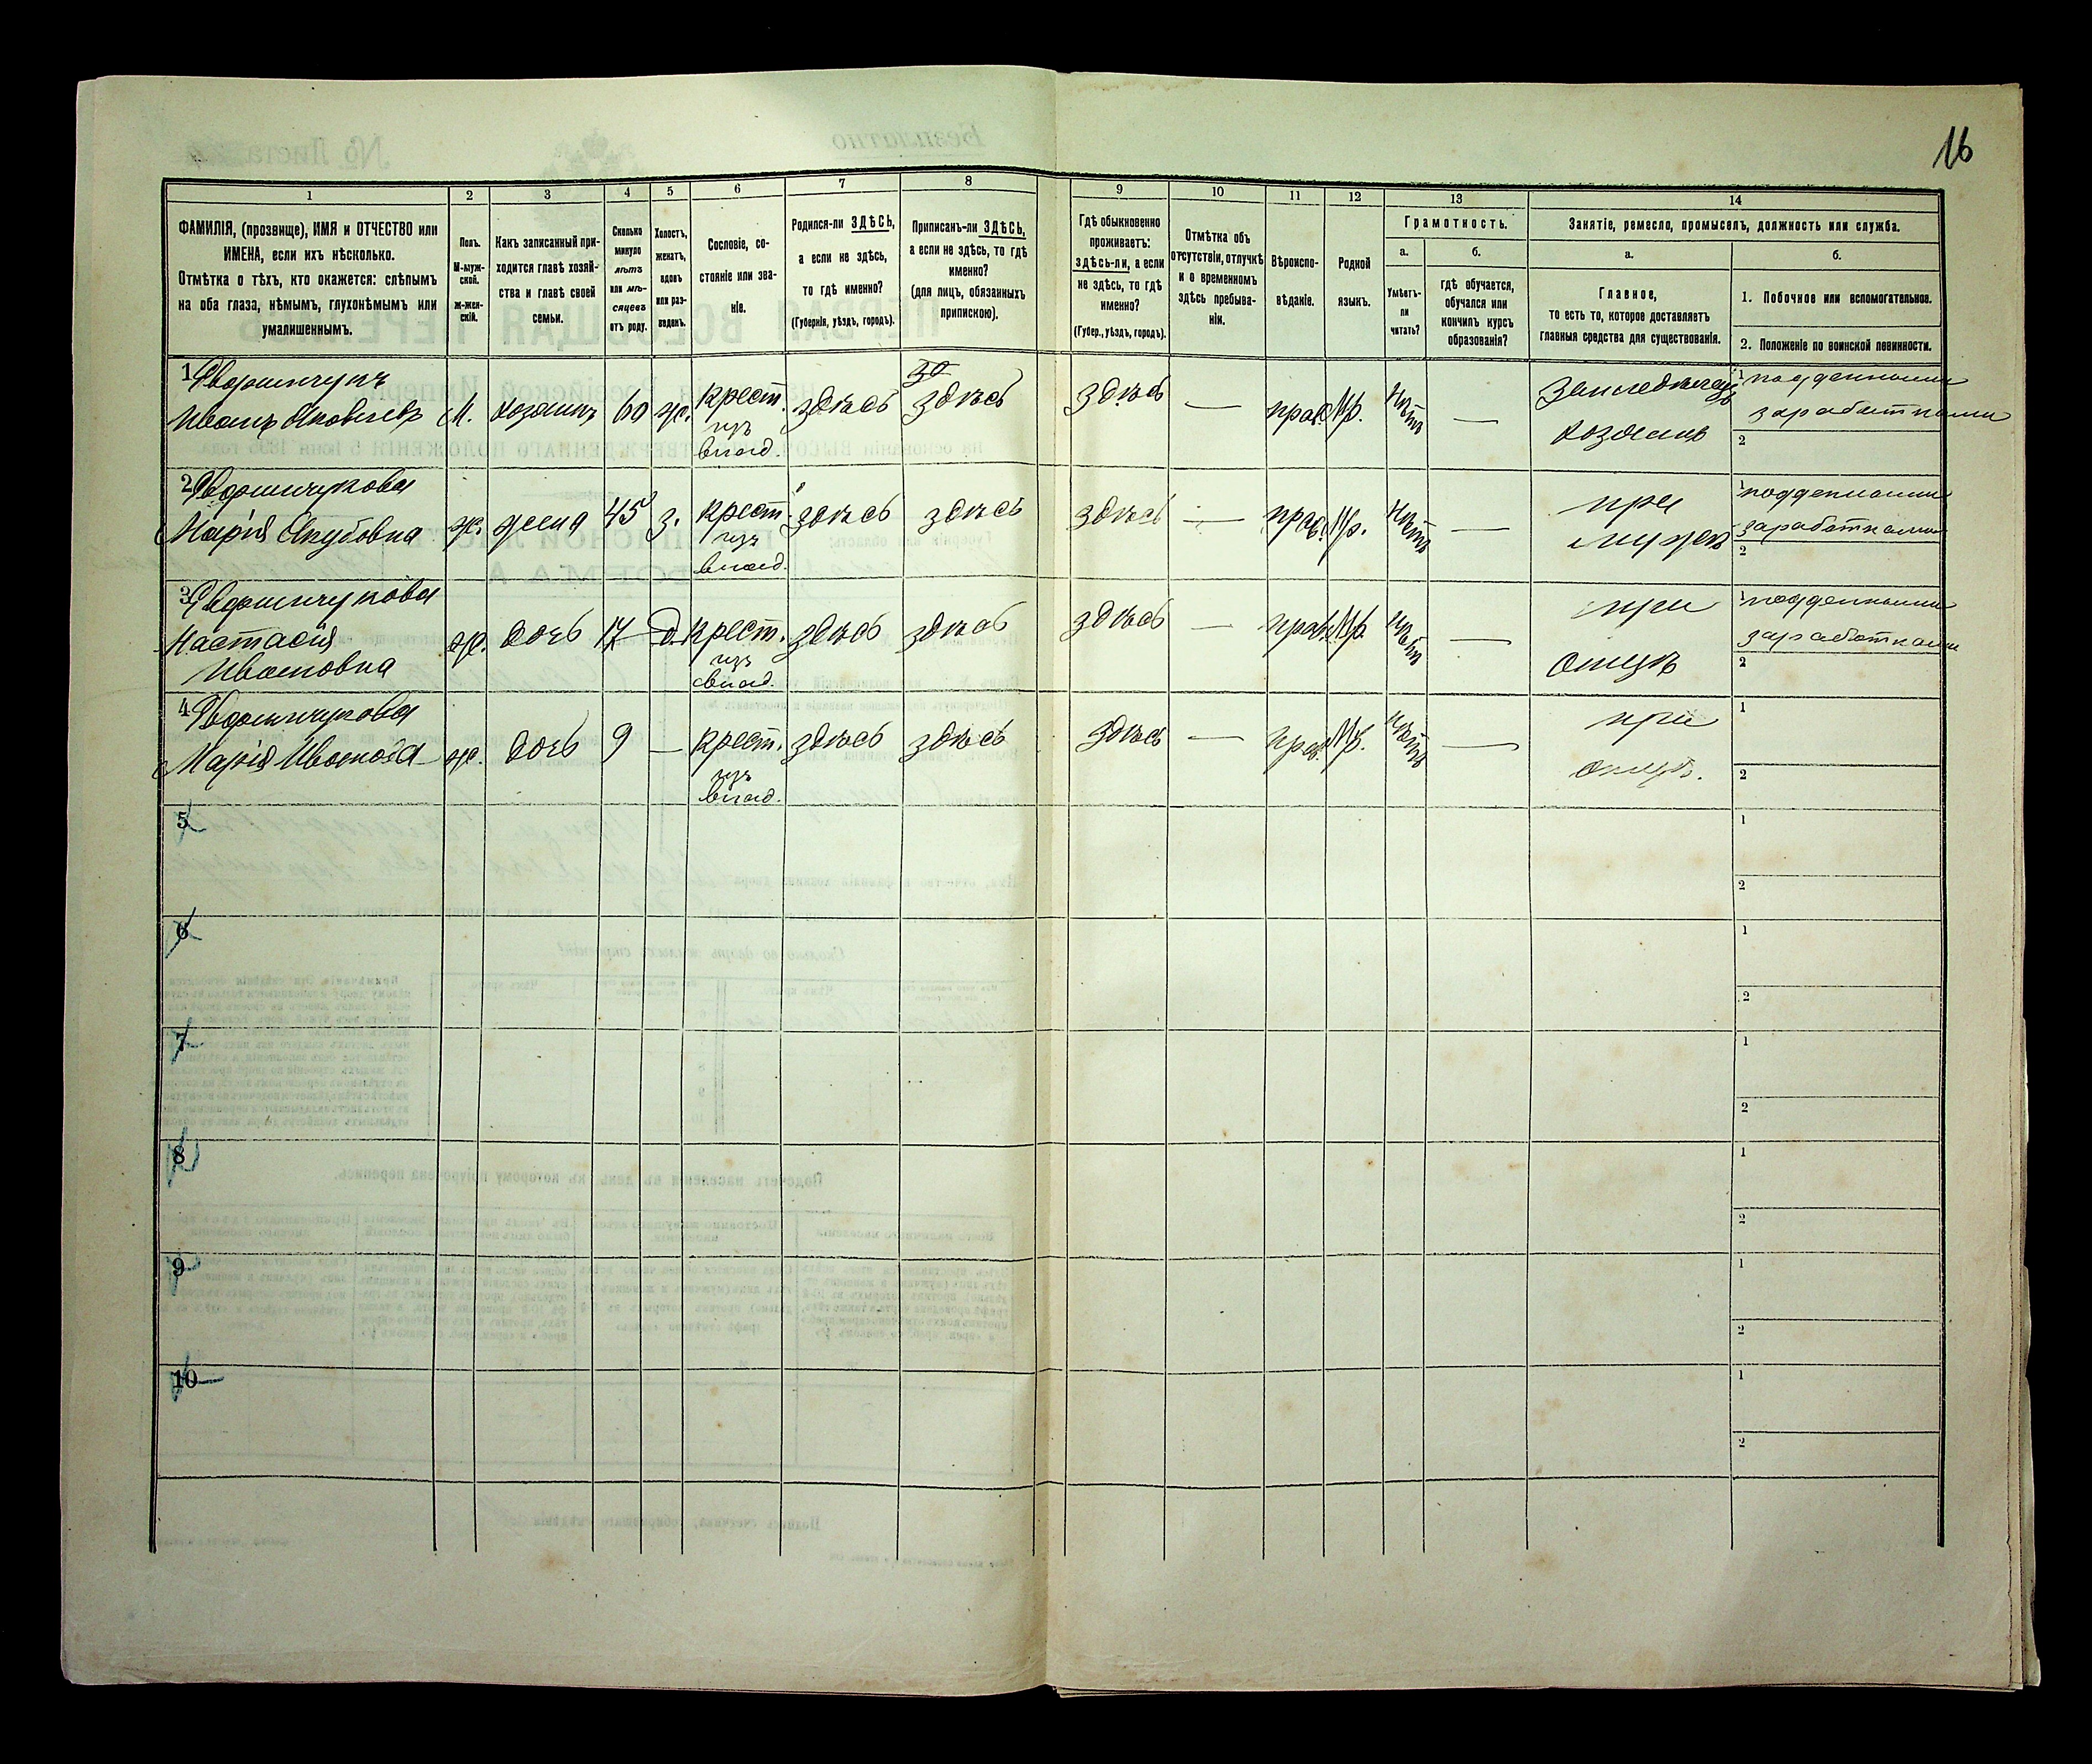 16
1 2 3 4 5 6 7 8 9 10 11 12 13 14
ФАМИЛІЯ, (прозвище), ИМЯ и ОТЧЕСТВО или
ИМЕНА, если ихъ нѣсколько.
Отмѣтка о тѣхъ, кто окажется: слѣпымъ
на оба глаза, нѣмымъ, глухонѣмымъ или
умалишеннымъ.
Полъ.
М-муж-
ской.
ж-жен-
скій.
Какъ записанный при-
ходится главѣ хозяй-
ства и главѣ своей
семьи.
Сколько
минуло
лѣтъ
или мѣ-
сяцевъ
отъ роду.
Холостъ,
женатъ,
вдовъ
или раз-
веденъ.
Сословіе, со-
стояніе или зва-
ніе.
Родился-ли ЗДѢСЬ,
а если не здѣсь,
то гдѣ именно?
(Губернія, уѣздъ, городъ).
Приписанъ-ли ЗДѢСЬ,
а если не здѣсь, то гдѣ
именно?
(для лицъ, обязанныхъ
припискою).
Гдѣ обыкновенно
проживаетъ:
здѣсь-ли, а если
не здѣсь, то гдѣ
именно?
(Губер., уѣздъ, городъ).
Отмѣтка объ
отсутствіи, отлучкѣ
и о временномъ
здѣсь пребыва-
ніи.
Вѣроиспо-
вѣданіе.
Родной
языкъ.
Грамотность.
а.
Умѣетъ-
ли
читать?
б.
гдѣ обучается,
обучался или
кончилъ курсъ
образованія?
Занятіе, ремесло, промыселъ, должность или служба.
а.
Главное,
то есть то, которое доставляетъ
главныя средства для существованія.
б.
1. Побочное или вспомогательное.
2. Положеніе по воинской повинности.
1
Иванъ Яковлевъ М. хозяинъ 60 ж. крест. изъ влад. здѣсь здѣсь здѣсь — прав. Мр. Нѣтъ — Земледѣлецъ хозяинъ
1 поденными
заработками
2
2
Марія Якубовна ж. жена 45 з. крест. изъ влад. здѣсь здѣсь здѣсь — прав. Мр. Нѣтъ — при мужѣ
1 поденными
заработками
2
3
Настасія
Ивановна ж. дочь 17 д. крест. изъ влад. здѣсь здѣсь здѣсь — прав. Мр. нѣтъ — при отцѣ
1 поденными
заработками
2
4
Марія Иванова ж. дочь 9 — крест. изъ влад. здѣсь здѣсь здѣсь — прав. Мр. нѣтъ — при отцѣ.
1
2
5
1
2
6
1
2
7
1
2
8
1
2
9
1
2
10
1
2